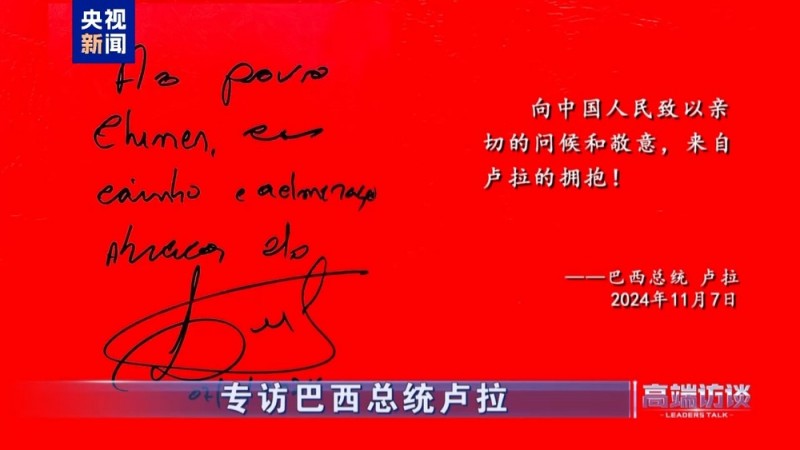 央视
新闻
Ao povo
carinho e
Abraços do
向中国人民致以亲
切的问候和敬意，来自
卢拉的拥抱！
——巴西总统 卢拉
2024年11月7日
专访巴西总统卢拉
高端访谈
LEADERS TALK